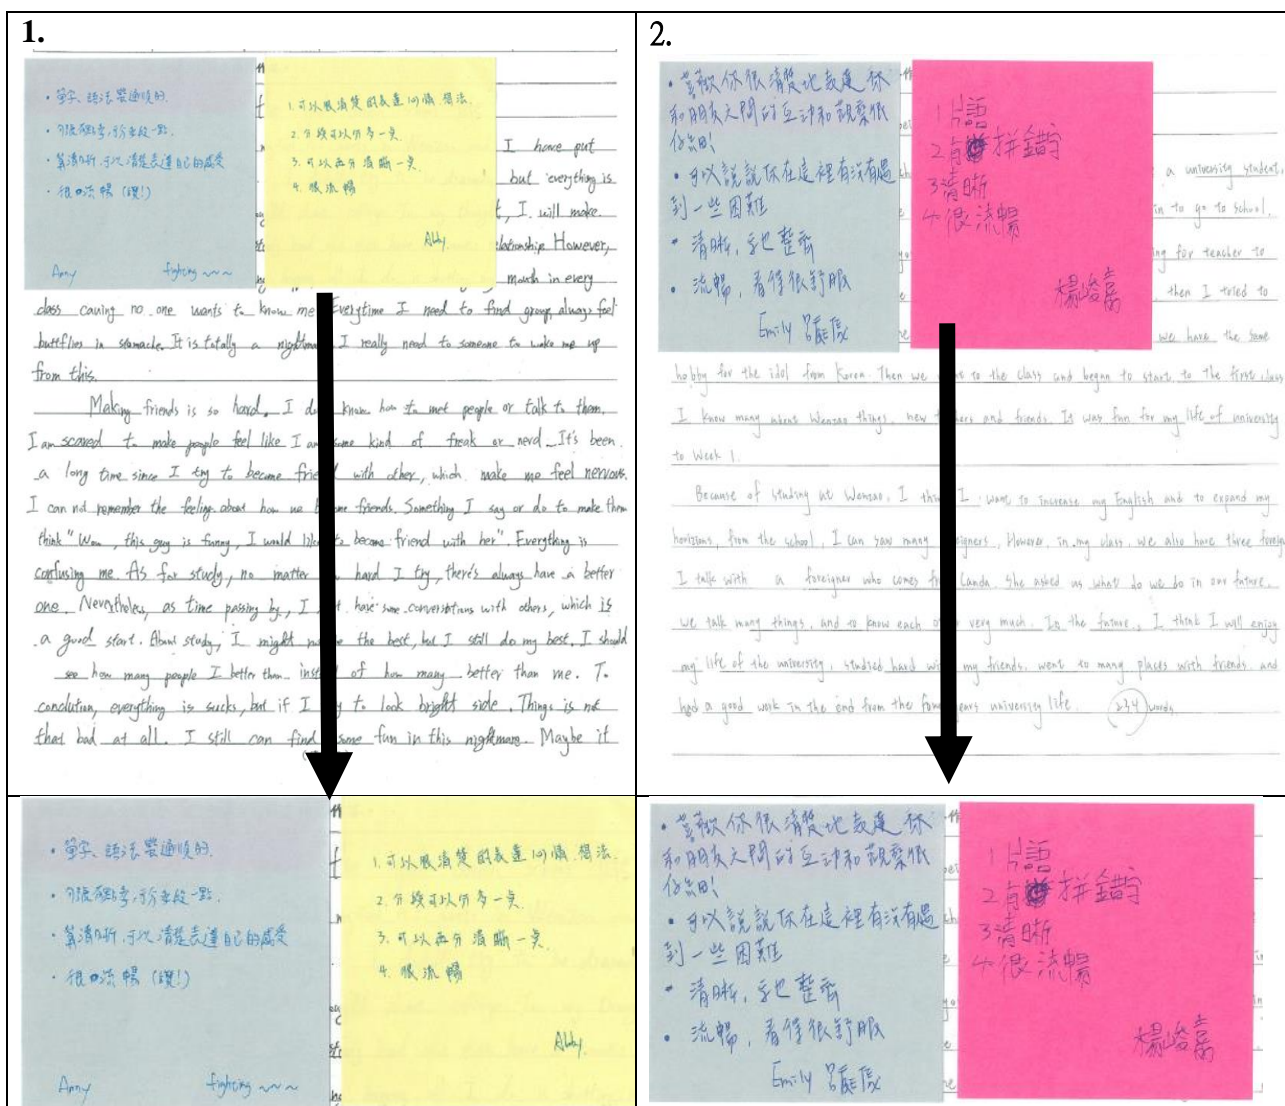 1.
單字、語法蠻通順的.
句張有點亏,可分多段一點.
算清晰,可以清楚表達自己的感受
很流暢 (讚!)
Anny fighting~~~
1.可以很清楚的表達 想法.
2.分段可以分多一点.
3.可以再分清晰一点.
4.很流暢
Abby
I have put
but everything is
t, I will make.
relationship However,
mouth in every
class causing no one wants to know me Everytime I need to find group, always feel
buttflies in stomacle. It is totally a I really need to someone to wake me up
from this.
Making friends is so hard. I know how to met people or talk to them.
I am scared to make people feel like I am some kind of freak or nerd It's been
a long time since I try to become with other, which make me feel nervous.
I can not remember the feeling about how we friends. Something I say or do to make them
think "Wow, this guy is funny, I would to become friend with her". Everything is
confusing me. As for study, no matter hard I try, there's always have a better
one. Nevertheless, as time passing by, I have some conversations with others, which is
a good start. About study, I might the best, but I still do my best. I should
see how many people I better than of how many better than me. To
conclution, everything is sucks, but if I to look bright side. Things is not
that bad at all. I still can find some fun in this nightmare. Maybe it
2.
喜歡你很清楚地表達你
和朋友之間的互動和觀察很
仔細!
可以說說你在這裡有沒有遇
到一些困難
清晰,字也整齊
流暢,看得很舒服
Emily
1片語
2有拼錯字
3清晰
4很流暢
楊峻嘉
a university student,
in to go to school.
ing for teacher to
then I tried to
we have the same
hobby for the idol from Korea. Then we to the class and began to start to the first class
I know many about Wenzao things, new and friends. It was fun for my life of university
to Week 1.
Because of studing at Wenzao, I I want to increase my English and to expand my
horizions, from the school, I can saw many However, in my class, we also have three
I talk with a foreigner who comes Canda. She asked us what do we do in our future.
we talk many things, and to know each very much. In the future, I think I will enjoy
my life of the university, studied hard my friends, went to many places with friends, and
had a good work in the end from the university life. 234 words
單字、語法蠻通順的.
句張有點亏,可分多段一點.
算清晰,可以清楚表達自己的感受
很流暢 (讚!)
Anny fighting~~~
1.可以很清楚的表達 想法.
2.分段可以分多一点.
3.可以再分清晰一点.
4.很流暢
Abby
喜歡你很清楚地表達你
和朋友之間的互動和觀察很
仔細!
可以說說你在這裡有沒有遇
到一些困難
清晰,字也整齊
流暢,看得很舒服
Emily
1片語
2有拼錯字
3清晰
4很流暢
楊峻嘉